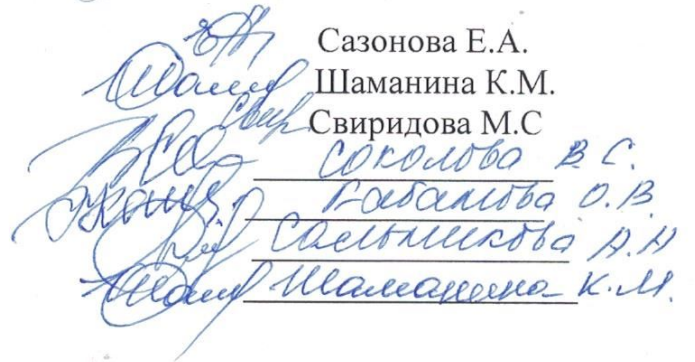 Сазонова Е.А.
Шаманина К.М.
Свир Свиридова М.С
Соколова В.С.
О.В.
Сальникова А.Н
Шаманина К.М.